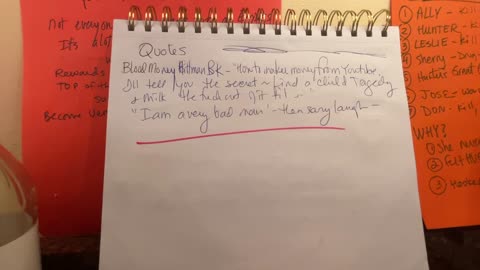 not everyon
It's alot
Rewards
TOP of the
Become Ver
Quotes
Blood Money Hitman Bk - "How to make money from Youtube
I'll tell you the secret - find a child Tragedy
& milk the fuck out of it
"I am a very bad man" - then laugh -
① ALLY - Kill
② HUNTER - Kill
③ LESLIE - Kill
④ Sherry - Drug
Hunters Great
⑥ JOSE - Wan
⑦ DON - Kill,
WHY?
① She
② FELT HU
③